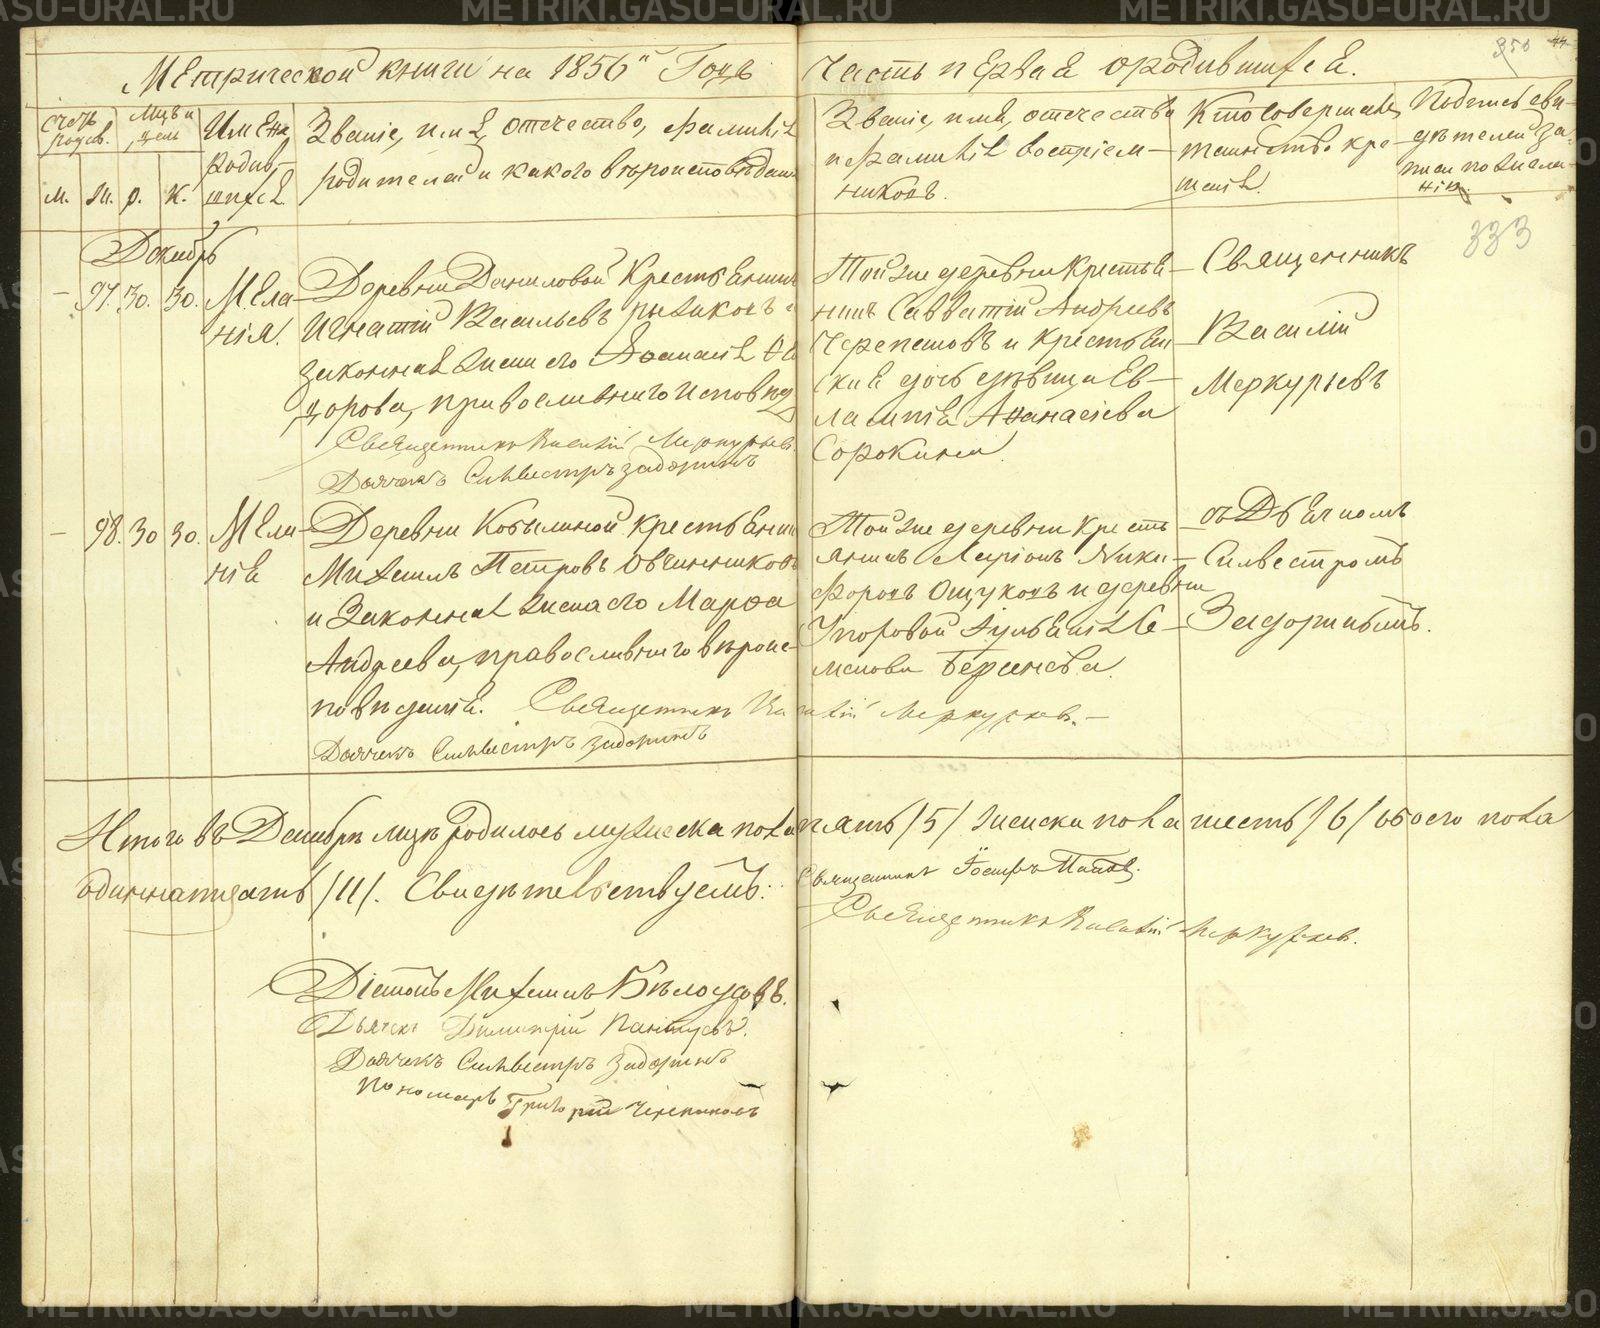 METRIKI.GASO-URAL.RU
Метрической книги на 1856й Годъ
Часть первая о родившихся.
Счетъ родив.
Мцъ и день
м. ж. р. к.
Имена
родив-
шихся.
Званіе, имя, отчество, фамилія
родителей и какого вѣроисповѣдан.
Званіе, имя, отчество
и фамилія воспріем-
никовъ.
Кто совершалъ
таинство кре-
щенія.
Подпись сви-
дѣтелей за-
писи по желa-
нію.
333
Декабрь
97. 30. 30.
Мела-
нія.
Деревни Даниловой крестьянинъ
Игнатій Васильевъ и
законная жена его Афанасія Фе
дорова, православнаго исповѣд
Священникъ Василій Меркурьевъ
Дьячекъ Сильвестръ Задоринъ
Той же деревни крестья-
нинъ Савватій Андреевъ
Черепановъ и крестьян-
ская дочь дѣвица Ев-
лампія Афанасіева
Сорокина.
Священникъ
Василій
Меркурьевъ
98. 30 30.
Мела-
нія
Деревни Кобылиной крестьянин
Михаилъ Петровъ Овчинниковъ
и законная жена его Марфа
Андреева, православнаго вѣроис-
повѣданія. Священникъ Василій Меркурьевъ.
Дьячекъ Сильвестръ Задоринъ
Той же деревни кресть
янинъ Ларіонъ Ники-
форовъ и деревни
Упоровой Іуліанія Се-
менова
съ Дьячкомъ
Силвестромъ
Задоринымъ.
Итого въ Декабрѣ мцѣ родилось мужеска пола пять /5/ женска пола шесть /6/ обоего пола
одиннатцать /11/. Свидѣтельствуемъ:
Священникъ Петръ Поповъ.
Священникъ Василій Меркурьевъ.
Діаконъ Михаилъ Бѣлоусовъ.
Дьячекъ Димитрій
Дьячекъ Сильвестръ Задоринъ
Пономарь Григорій
METRIKI.GASO-URAL.RU